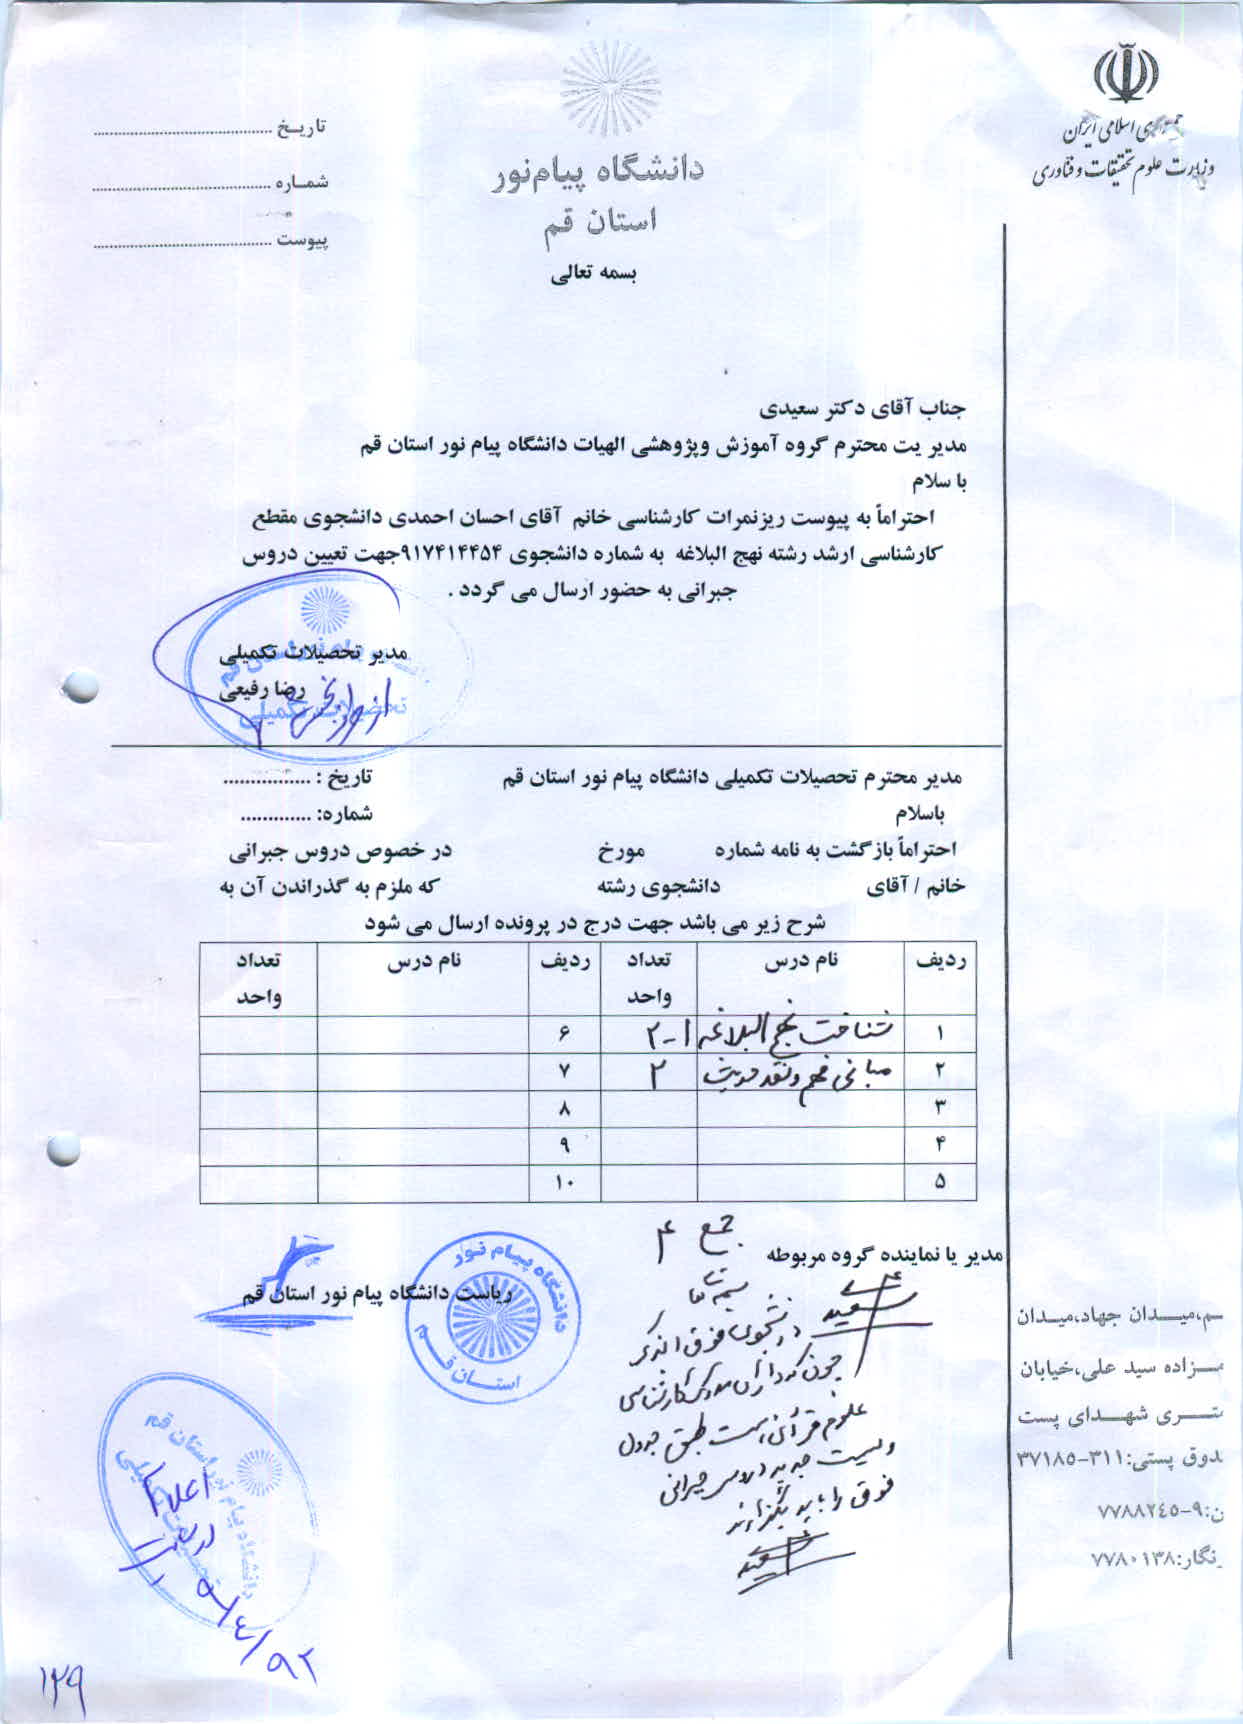 جمهوری اسلامی ایران
وزارت علوم تحقیقات و فناوری
دانشگاه پیام‌نور
استان قم
بسمه تعالی
تاریـخ ........................................
شمـاره ........................................
پیوست ........................................
جناب آقای دکتر سعیدی
مدیر یت محترم گروه آموزش وپژوهشی الهیات دانشگاه پیام نور استان قم
با سلام
احتراماً به پیوست ریزنمرات کارشناسی خانم آقای احسان احمدی دانشجوی مقطع
کارشناسی ارشد رشته نهج البلاغه به شماره دانشجوی ۹۱۷۴۱۴۴۵۴جهت تعیین دروس
جبرانی به حضور ارسال می گردد .
مدیر تحصیلات تکمیلی
رضا رفیعی
تحصیلات تکمیلی
مدیر محترم تحصیلات تکمیلی دانشگاه پیام نور استان قم تاریخ : ................
باسلام شماره: .............
احتراماً بازگشت به نامه شماره مورخ در خصوص دروس جبرانی
خانم / آقای دانشجوی رشته که ملزم به گذراندن آن به
شرح زیر می باشد جهت درج در پرونده ارسال می شود
ردیف نام درس تعداد واحد ردیف نام درس تعداد واحد
۱ شناخت نهج البلاغه ۱ - ۲ ۶
۲ مبانی فهم و نقد حدیث ۲ ۷
۳ ۸
۴ ۹
۵ ۱۰
جمع ۴
مدیر یا نماینده گروه مربوطه
ریاست دانشگاه پیام نور استان قم
دانشگاه پیام نور
استان قم
بسمه تعالی
دانشجوی فوق الذکر
چون که دارای مدرک کارشناسی
علوم قرآنی است طبق جدول
و لیست جدید دروس جبرانی
فوق را باید بگذراند
سعیدی
دانشگاه پیام نور استان قم
تحصیلات تکمیلی
۹۲/۴/۹
۱۲۹
ـم،میـدان جهاد،میـدان
ـزاده سید علی،خیابان
ـتـری شهـدای پست
ـدوق پستی:۳۱۱-۳۷۱۸۵
ـن:۹-۷۷۸۸۲٤۵
ـنگار:۷۷۸۰۱۳۸